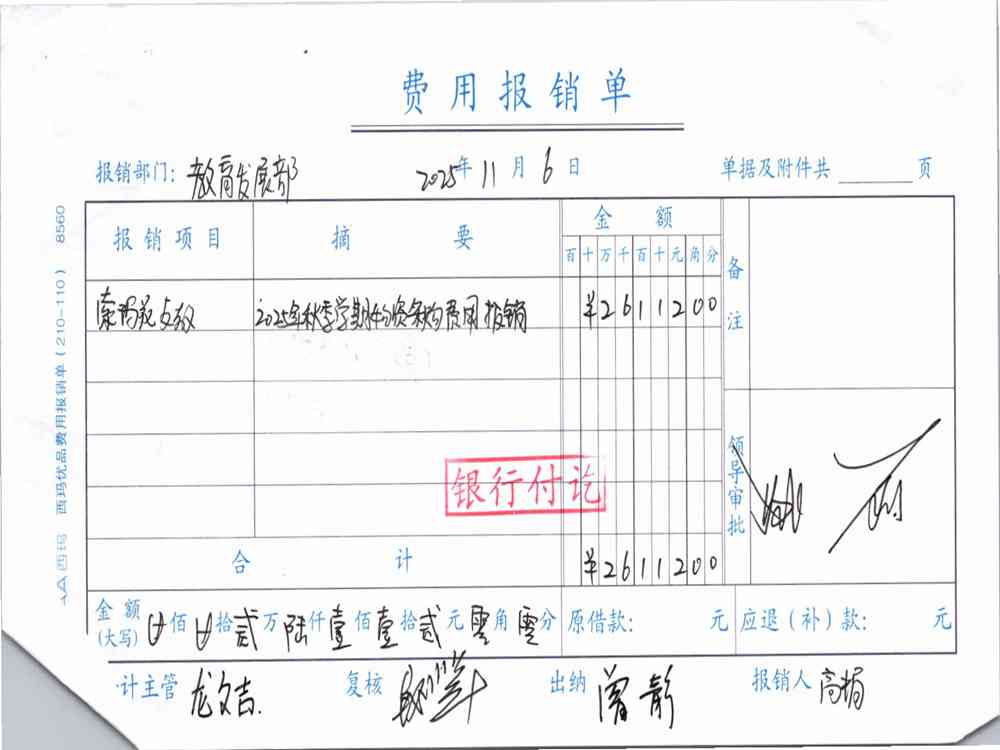 费用报销单
报销部门: 教育发展部 2025年 11月 6日 单据及附件共 页
报销项目 摘要 金额 备注
百 十 万 千 百 十 元 角 分
索玛花支教 2025年秋季学期物资采购费用报销 ¥2611200
银行付讫
领导审批
合计 ¥2611200
金额(大写) 佰 拾贰万陆仟壹佰壹拾贰元零角零分 原借款: 元 应退(补)款: 元
计主管 龙文吉. 复核 出纳 曾静 报销人 高娟
西玛 西玛优品费用报销单(210-110) 8560